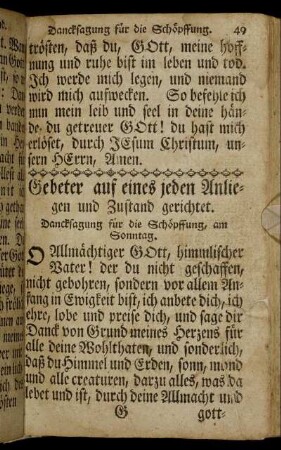 Dancksagung für die Schöpffung. 49
trösten, daß du, GOtt, meine hoff-
nung und ruhe bist im leben und tod.
Ich werde mich legen, und niemand
wird mich aufwecken. So befehle ich
nun mein leib und seel in deine hän-
de, du getreuer GOtt! du hast mich
erlöset, durch JEsum Christum, un-
sern HErrn, Amen.
Gebeter auf eines jeden Anlie-
gen und Zustand gerichtet.
Dancksagung für die Schöpffung, am
Sonntag.
O Allmächtiger GOtt, himmlischer
Vater! der du nicht geschaffen,
nicht gebohren, sondern vor allem An-
fang in Ewigkeit bist, ich anbete dich, ich
ehre, lobe und preise dich, und sage dir
Danck von Grund meines Herzens für
alle deine Wohlthaten, und sonderlich,
daß du Himmel und Erden, sonn, mond
und alle creaturen, darzu alles, was da
lebet und ist, durch deine Allmacht und
G gott-